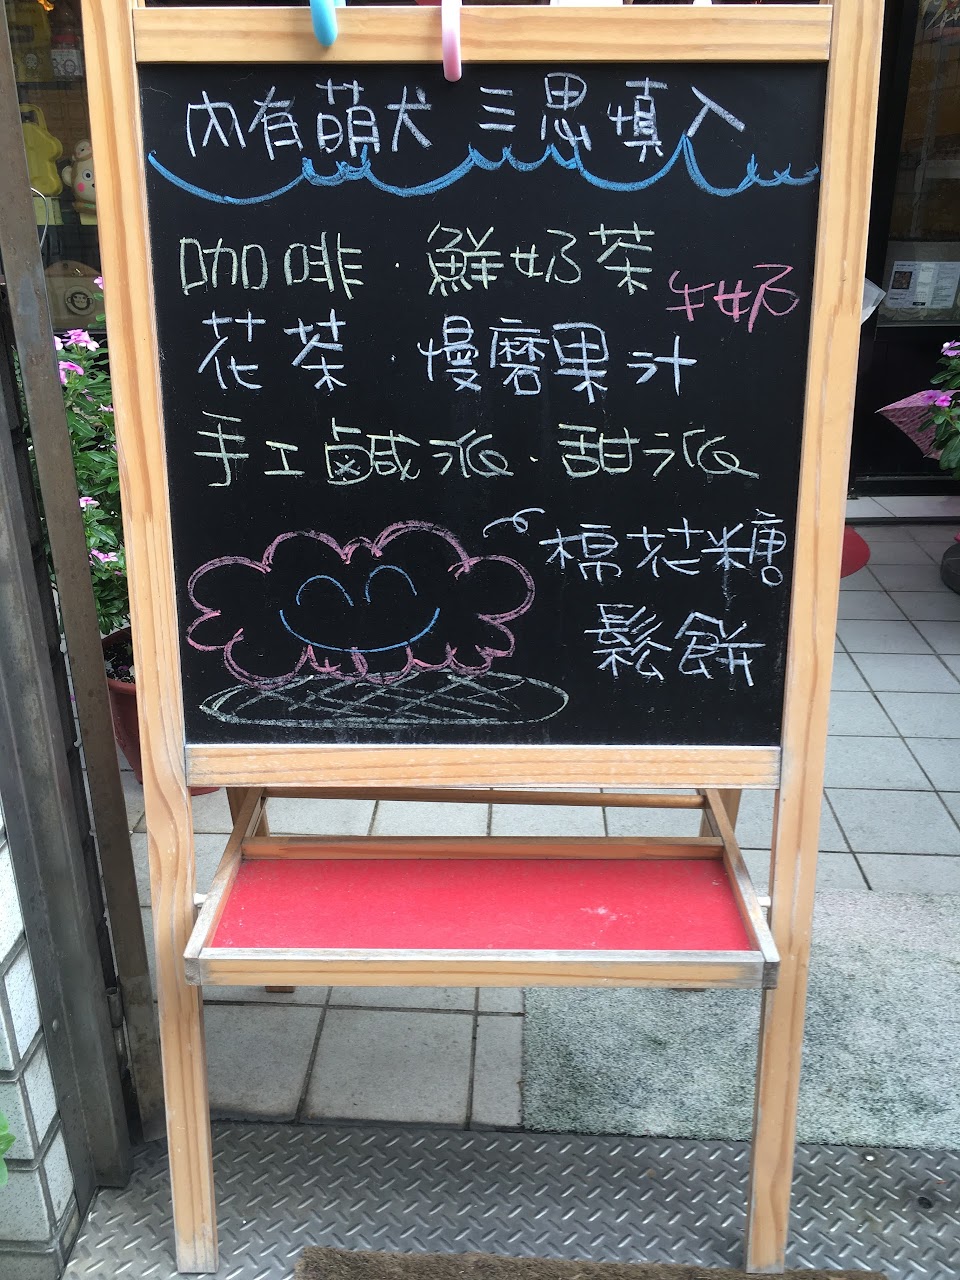 內有萌犬 三思慎入
咖啡．鮮奶茶
牛奶
花茶．慢磨果汁
手工鹹派．甜派
棉花糖
鬆餅